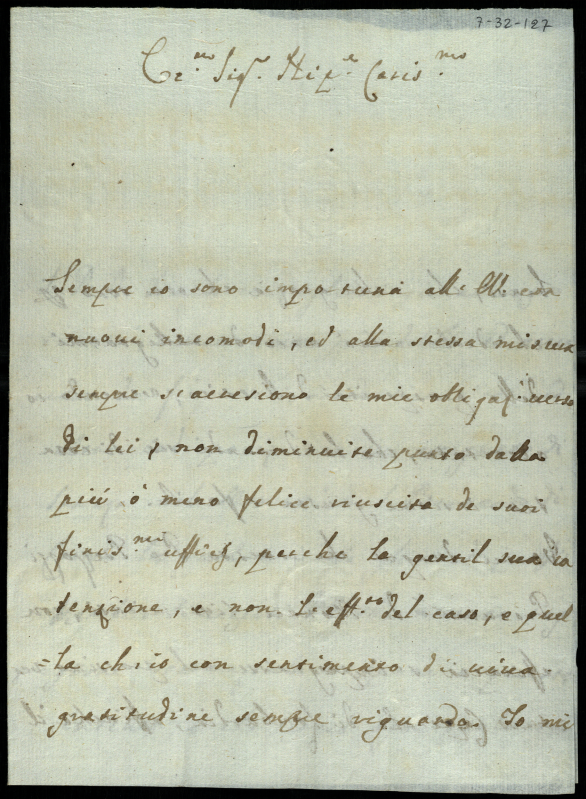 7-32-127
Sig.r Nip.e Caris.mo
Sempre io sono importuna all. con
nuovi incomodi, ed alla stessa misura
sempre s'accresiono le mie obligaz.i verso
di lei, non diminuite punto dalla
più ò meno felice riuscita de suoi
finis.mi ufficj, perche la gentil sua in
tenzione, e non l'eff.to del caso, e quel
=la ch'io con sentimento di viva
gratitudine sempre riguardo. Io mi